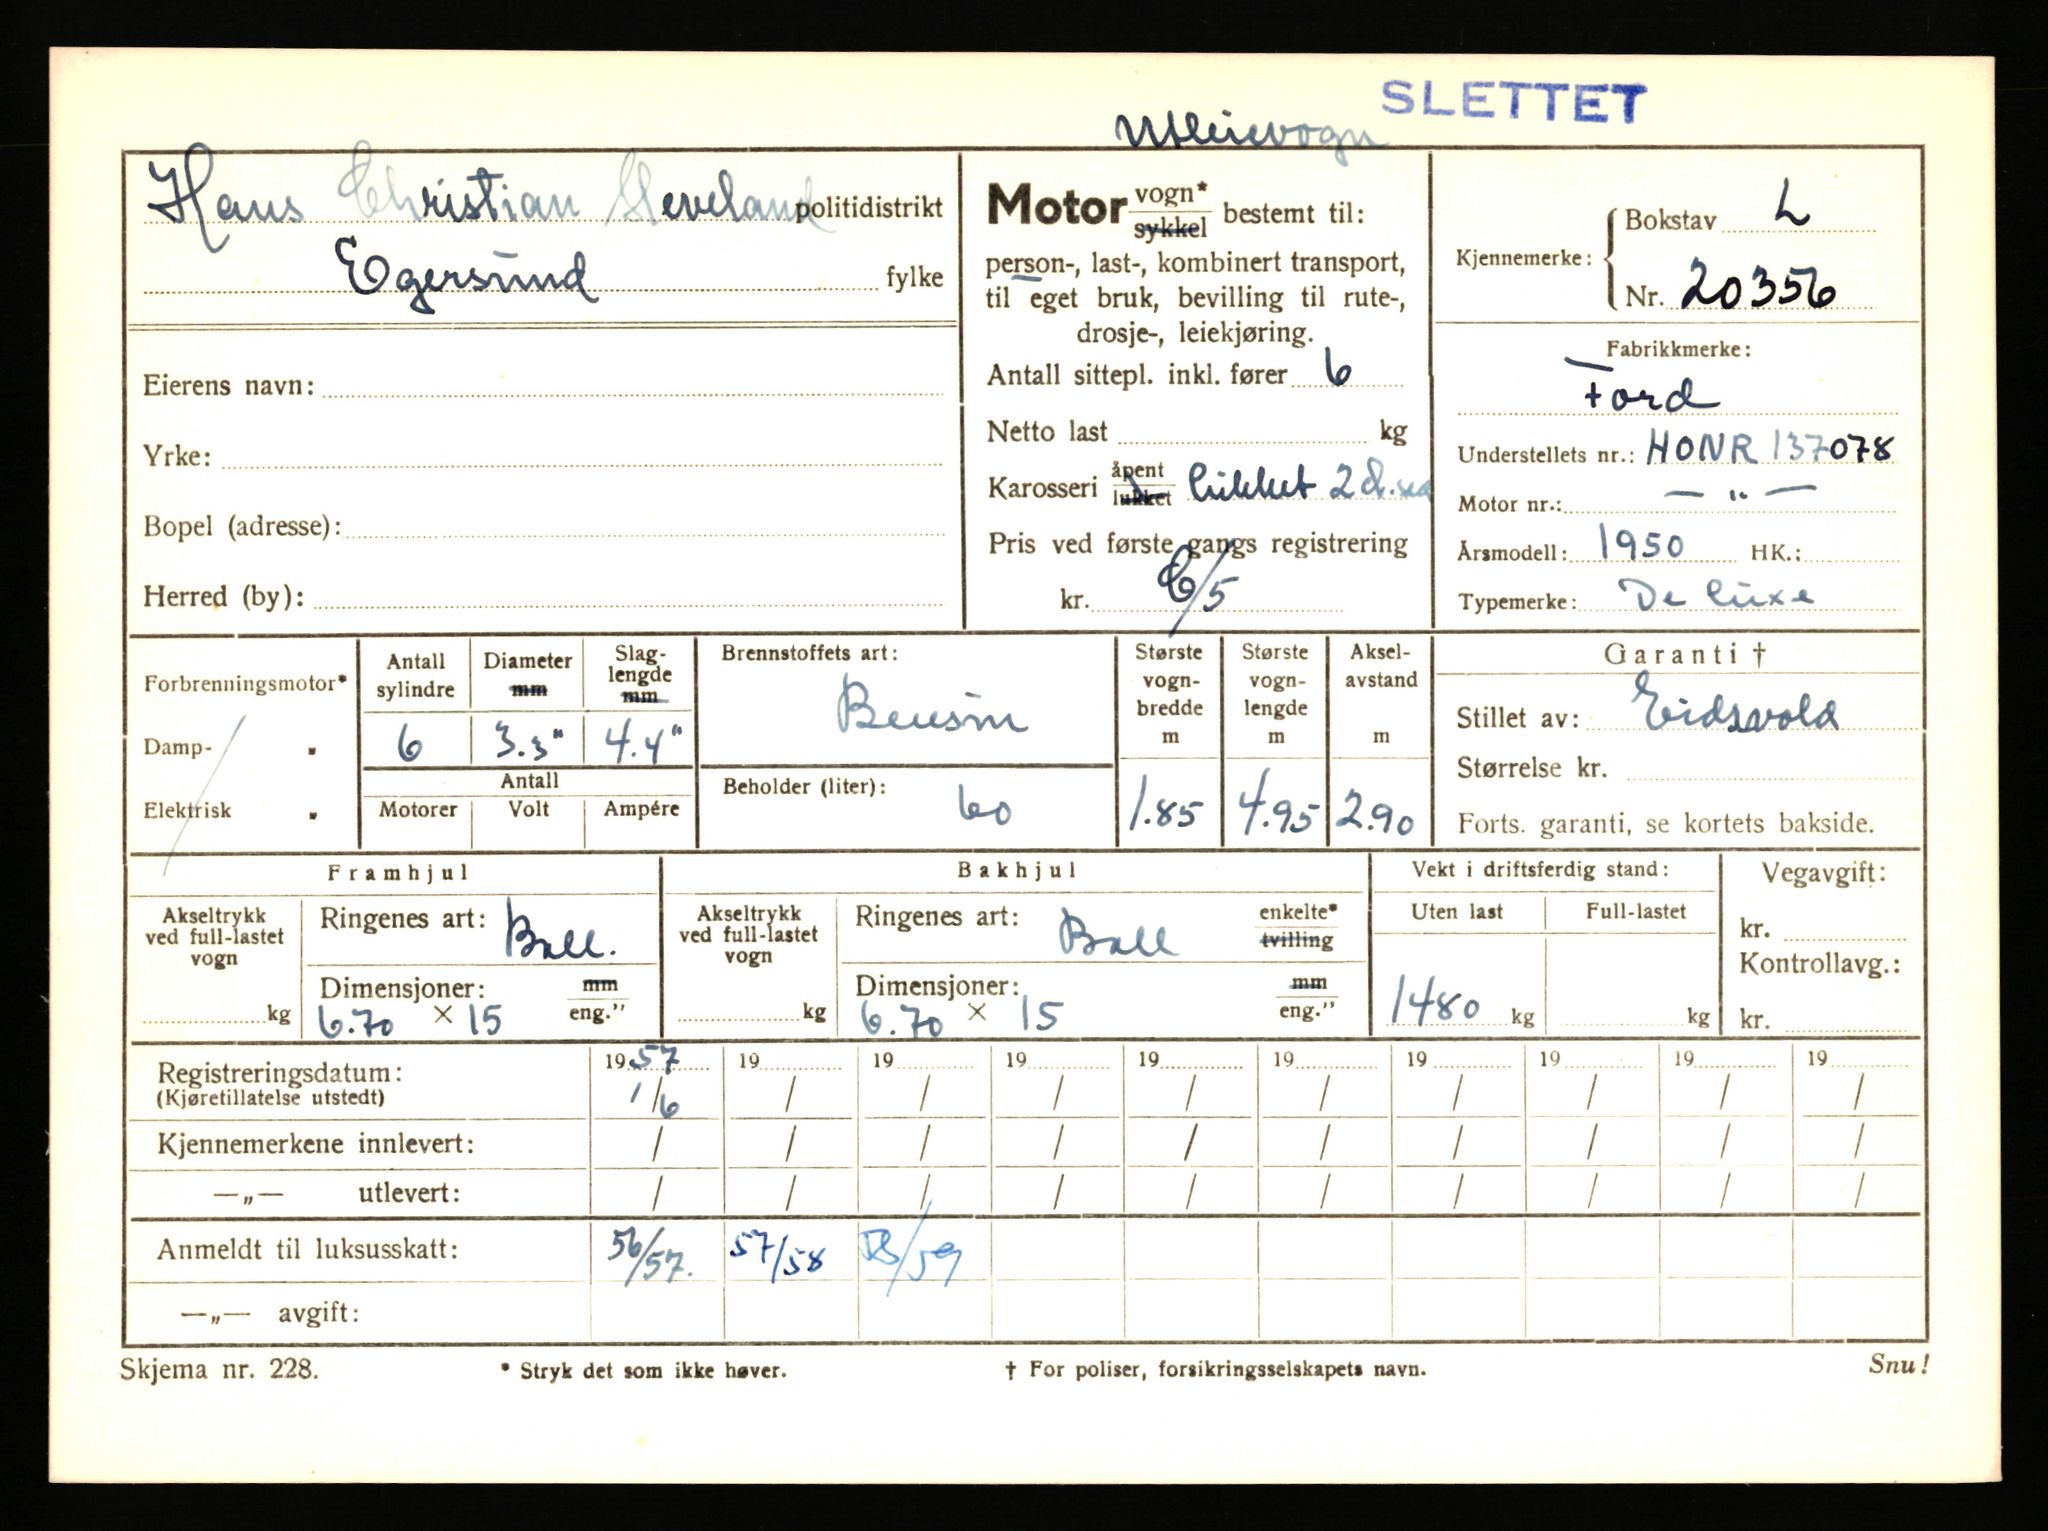 SLETTET
Utleievogn
Hans Christian Sleveland politidistrikt
Egersund fylke
Eierens navn:
Yrke:
Bopel (adresse):
Herred (by):
Motor vogn* sykkel bestemt til:
person-, last-, kombinert transport,
til eget bruk, bevilling til rute-,
drosje-, leiekjøring.
Antall sittepl. inkl. fører 6
Netto last kg
Karosseri åpent lukket lukket 2 d.
Pris ved første gangs registrering
kr. C/5
Kjennemerke: Bokstav L
Nr. 20356
Fabrikkmerke:
Ford
Understellets nr.: HONR 137078
Motor nr.: — " —
Årsmodell: 1950 HK.:
Typemerke: De luxe
Forbrenningsmotor*
Damp- "
Elektrisk "
Antall sylindre Diameter mm Slag-lengde mm
6 3.3" 4.4"
Antall
Motorer Volt Ampére
Brennstoffets art:
Bensin
Beholder (liter):
60
Største vogn-bredde m
1.85
Største vogn-lengde m
4.95
Aksel-avstand m
2.90
Garanti †
Stillet av: Eidsvold
Størrelse kr.
Forts. garanti, se kortets bakside.
Framhjul
Akseltrykk ved full-lastet vogn
kg
Ringenes art: Ball.
Dimensjoner: mm eng."
6.70 × 15
Bakhjul
Akseltrykk ved full-lastet vogn
kg
Ringenes art: Ball enkelte* tvilling
Dimensjoner: mm eng."
6.70 × 15
Vekt i driftsferdig stand:
Uten last Full-lastet
1480 kg kg
Vegavgift:
kr.
Kontrollavg.:
kr.
Registreringsdatum: 19 57 19 19 19 19 19 19 19 19 19
(Kjøretillatelse utstedt) 1/6 / / / / / / / / /
Kjennemerkene innlevert: / / / / / / / / / /
—„— utlevert: / / / / / / / / / /
Anmeldt til luksusskatt: 56/57. 57/58 58/59
—„— avgift:
Skjema nr. 228. * Stryk det som ikke høver. † For poliser, forsikringsselskapets navn. Snu!